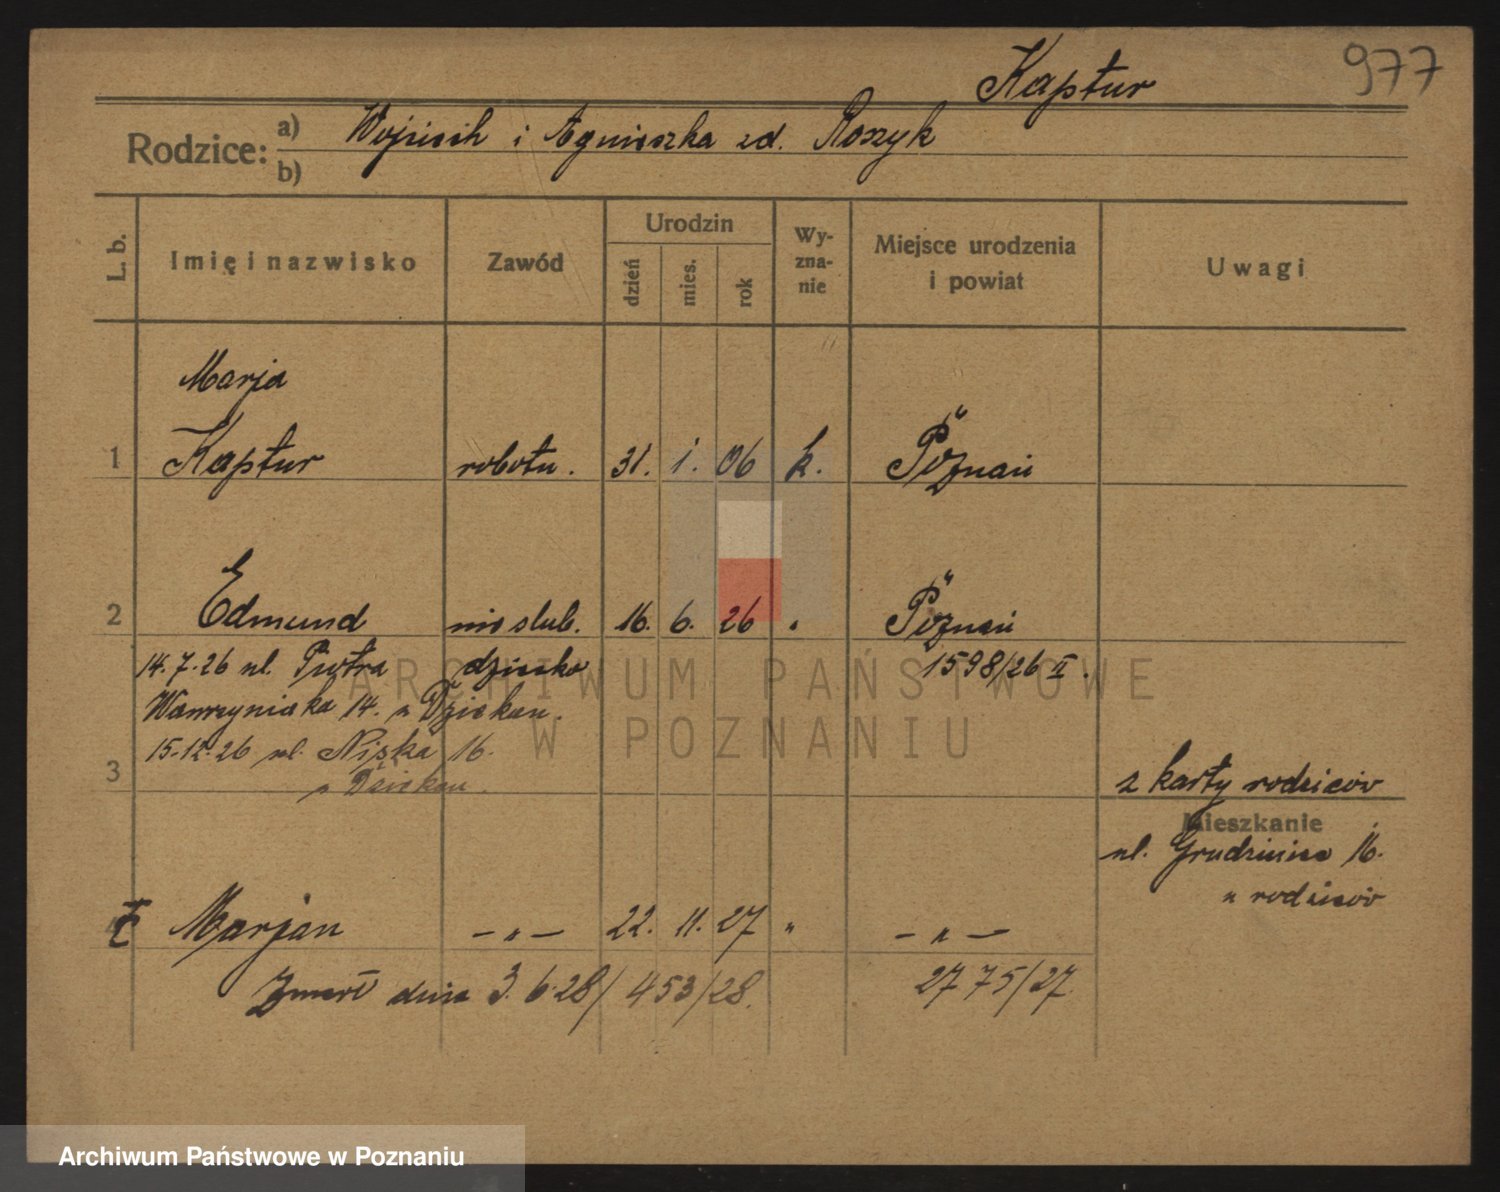 977
Kaptur
Rodzice: a) Wojciech i Agnieszka zd. Roszyk
b)
L. b. Imię i nazwisko Zawód Urodzin dzień mies. rok Wy-zna-nie Miejsce urodzenia i powiat Uwagi
Marja
1 Kaptur robotn. 31. 1. 06 k. Poznań
2 Edmund nieślub. 16. 6. 26 " Poznań
14.7.26 ul. Piotra dziecko 1598/26 II.
Wawrzyniaka 14. u Dziekan.
15.12.26 ul. Niska 16.
3 u Dziekan. z karty rodziców
Mieszkanie
ul. Grudzieniec 16.
u rodziców
Marjan — " — 22. 11. 27 " — " —
Zmarł dnia 3.6.28/453/28. 2775/27
ARCHIWUM PAŃSTWOWE
W POZNANIU
Archiwum Państwowe w Poznaniu